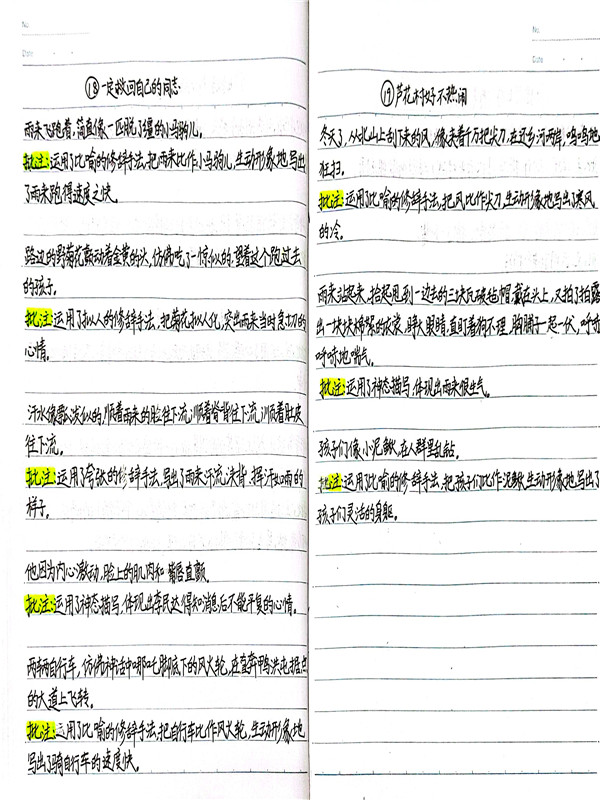 No.
Date
⑱一定救回自己的同志
雨来飞跑着,简直像一匹脱了缰的小马驹儿。
批注:运用了比喻的修辞手法,把雨来比作小马驹儿,生动形象地写出
了雨来跑得速度之快。
路边的野菊花颤动着金黄的头,仿佛吃了一惊似的,望着这个跑过去
的孩子。
批注:运用了拟人的修辞手法,把菊花拟人化,突出雨来当时急切的
心情。
汗水像瓢泼似的,顺着雨来的脸往下流,顺着脊背往下流,顺着肚皮
往下流。
批注:运用了夸张的修辞手法,写出了雨来汗流浃背、挥汗如雨的
样子。
他因为内心激动,脸上的肌肉和嘴唇直颤。
批注:运用了神态描写,体现出李民达得知消息后不能平复的心情。
两辆自行车,仿佛神话中哪吒脚底下的风火轮,在直奔鸭洪屯据点
的大道上飞转。
批注:运用了比喻的修辞手法,把自行车比作风火轮,生动形象地
写出了骑自行车的速度快。
No.
Date
⑲芦花村好不热闹
冬天了,从北山上刮下来的风,像夹着千万把尖刀,在还乡河两岸,呜呜地
狂扫。
批注:运用了比喻的修辞手法,把风比作尖刀,生动形象地写出了寒风
的冷。
雨来站起来,拾起甩到一边去的三块瓦破毡帽,戴在头上,又拍了拍露
出一块块棉絮的衣裳,睁大眼睛,直盯着狗不理,胸脯子一起一伏,呼哧
呼哧地喘气。
批注:运用了神态描写,体现出雨来很生气。
孩子们像小泥鳅,在人群里乱钻。
批注:运用了比喻的修辞手法,把孩子们比作泥鳅,生动形象地写出了
孩子们灵活的身躯。